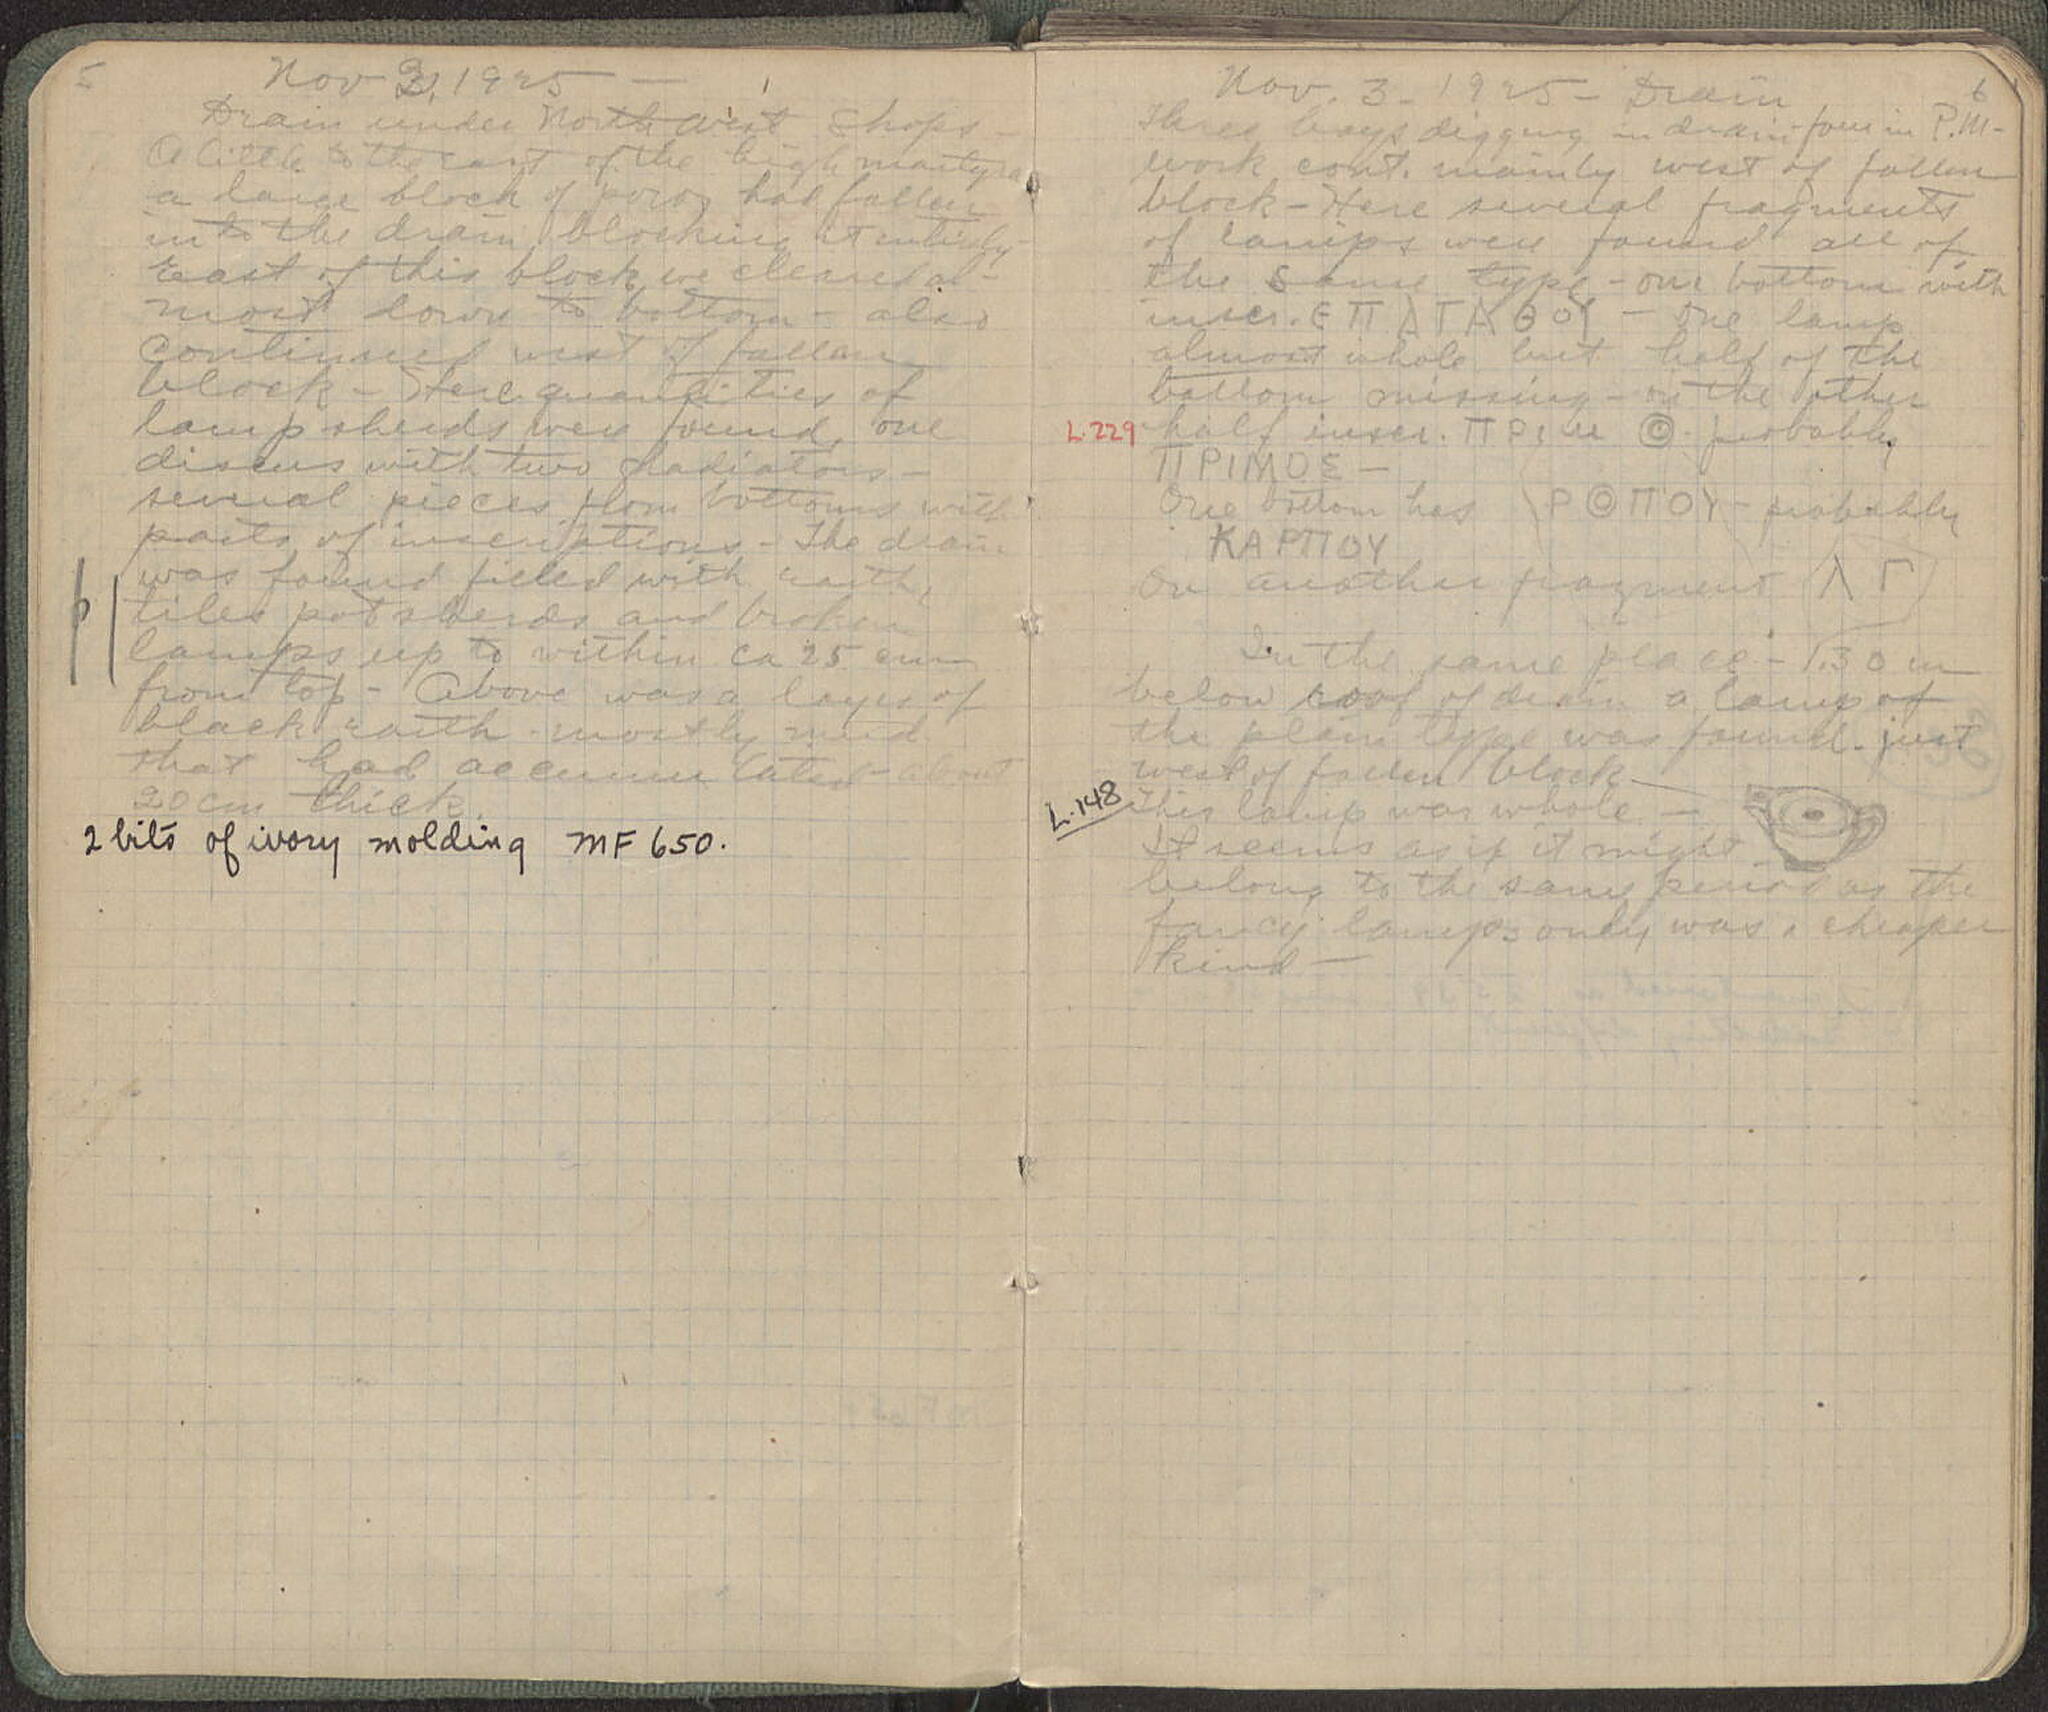 5
Nov 2, 1925 —
Drain under North West Shops —
A little to the east of the high
a large block of poros had fallen
into the drain blocking it entirely -
East of this block we cleared al-
most down to bottom - also
continued west of fallen
block - Here quantities of
lamp sherds were found, one
discus with two gladiators -
several pieces from bottoms with
parts of inscriptions - The drain
was found filled with earth,
tiles potsherds and broken
lamps up to within ca 25 cm
from top - Above was a layer of
black earth - mostly mud
that had accumulated - about
20 cm thick.
2 bits of ivory molding MF 650.
6
Nov. 3 - 1925 - Drain
Three boys digging in drain - four in P.M -
work cont. mainly west of fallen
block - Here several fragments
of lamps were found all of
the same type - one bottom with
inscr. ЄΠΑΓΑΘΟΥ - one lamp
almost whole but half of the
bottom missing - on the other
L.229 half inscr. ΠΡΙΜ Ⓞ. probably
ΠΡΙΜΟΣ -
One bottom has ΡⓄΠΟΥ - probably
ΚΑΡΠΟΥ
On another fragment ΛΓ
In the same place - 1.30 m
below roof of drain a lamp of
the plain type was found - just
west of fallen block -
L.148 This lamp was whole. -
It seems as if it might
belong to the same period as the
fancy lamps only was a cheaper
kind -